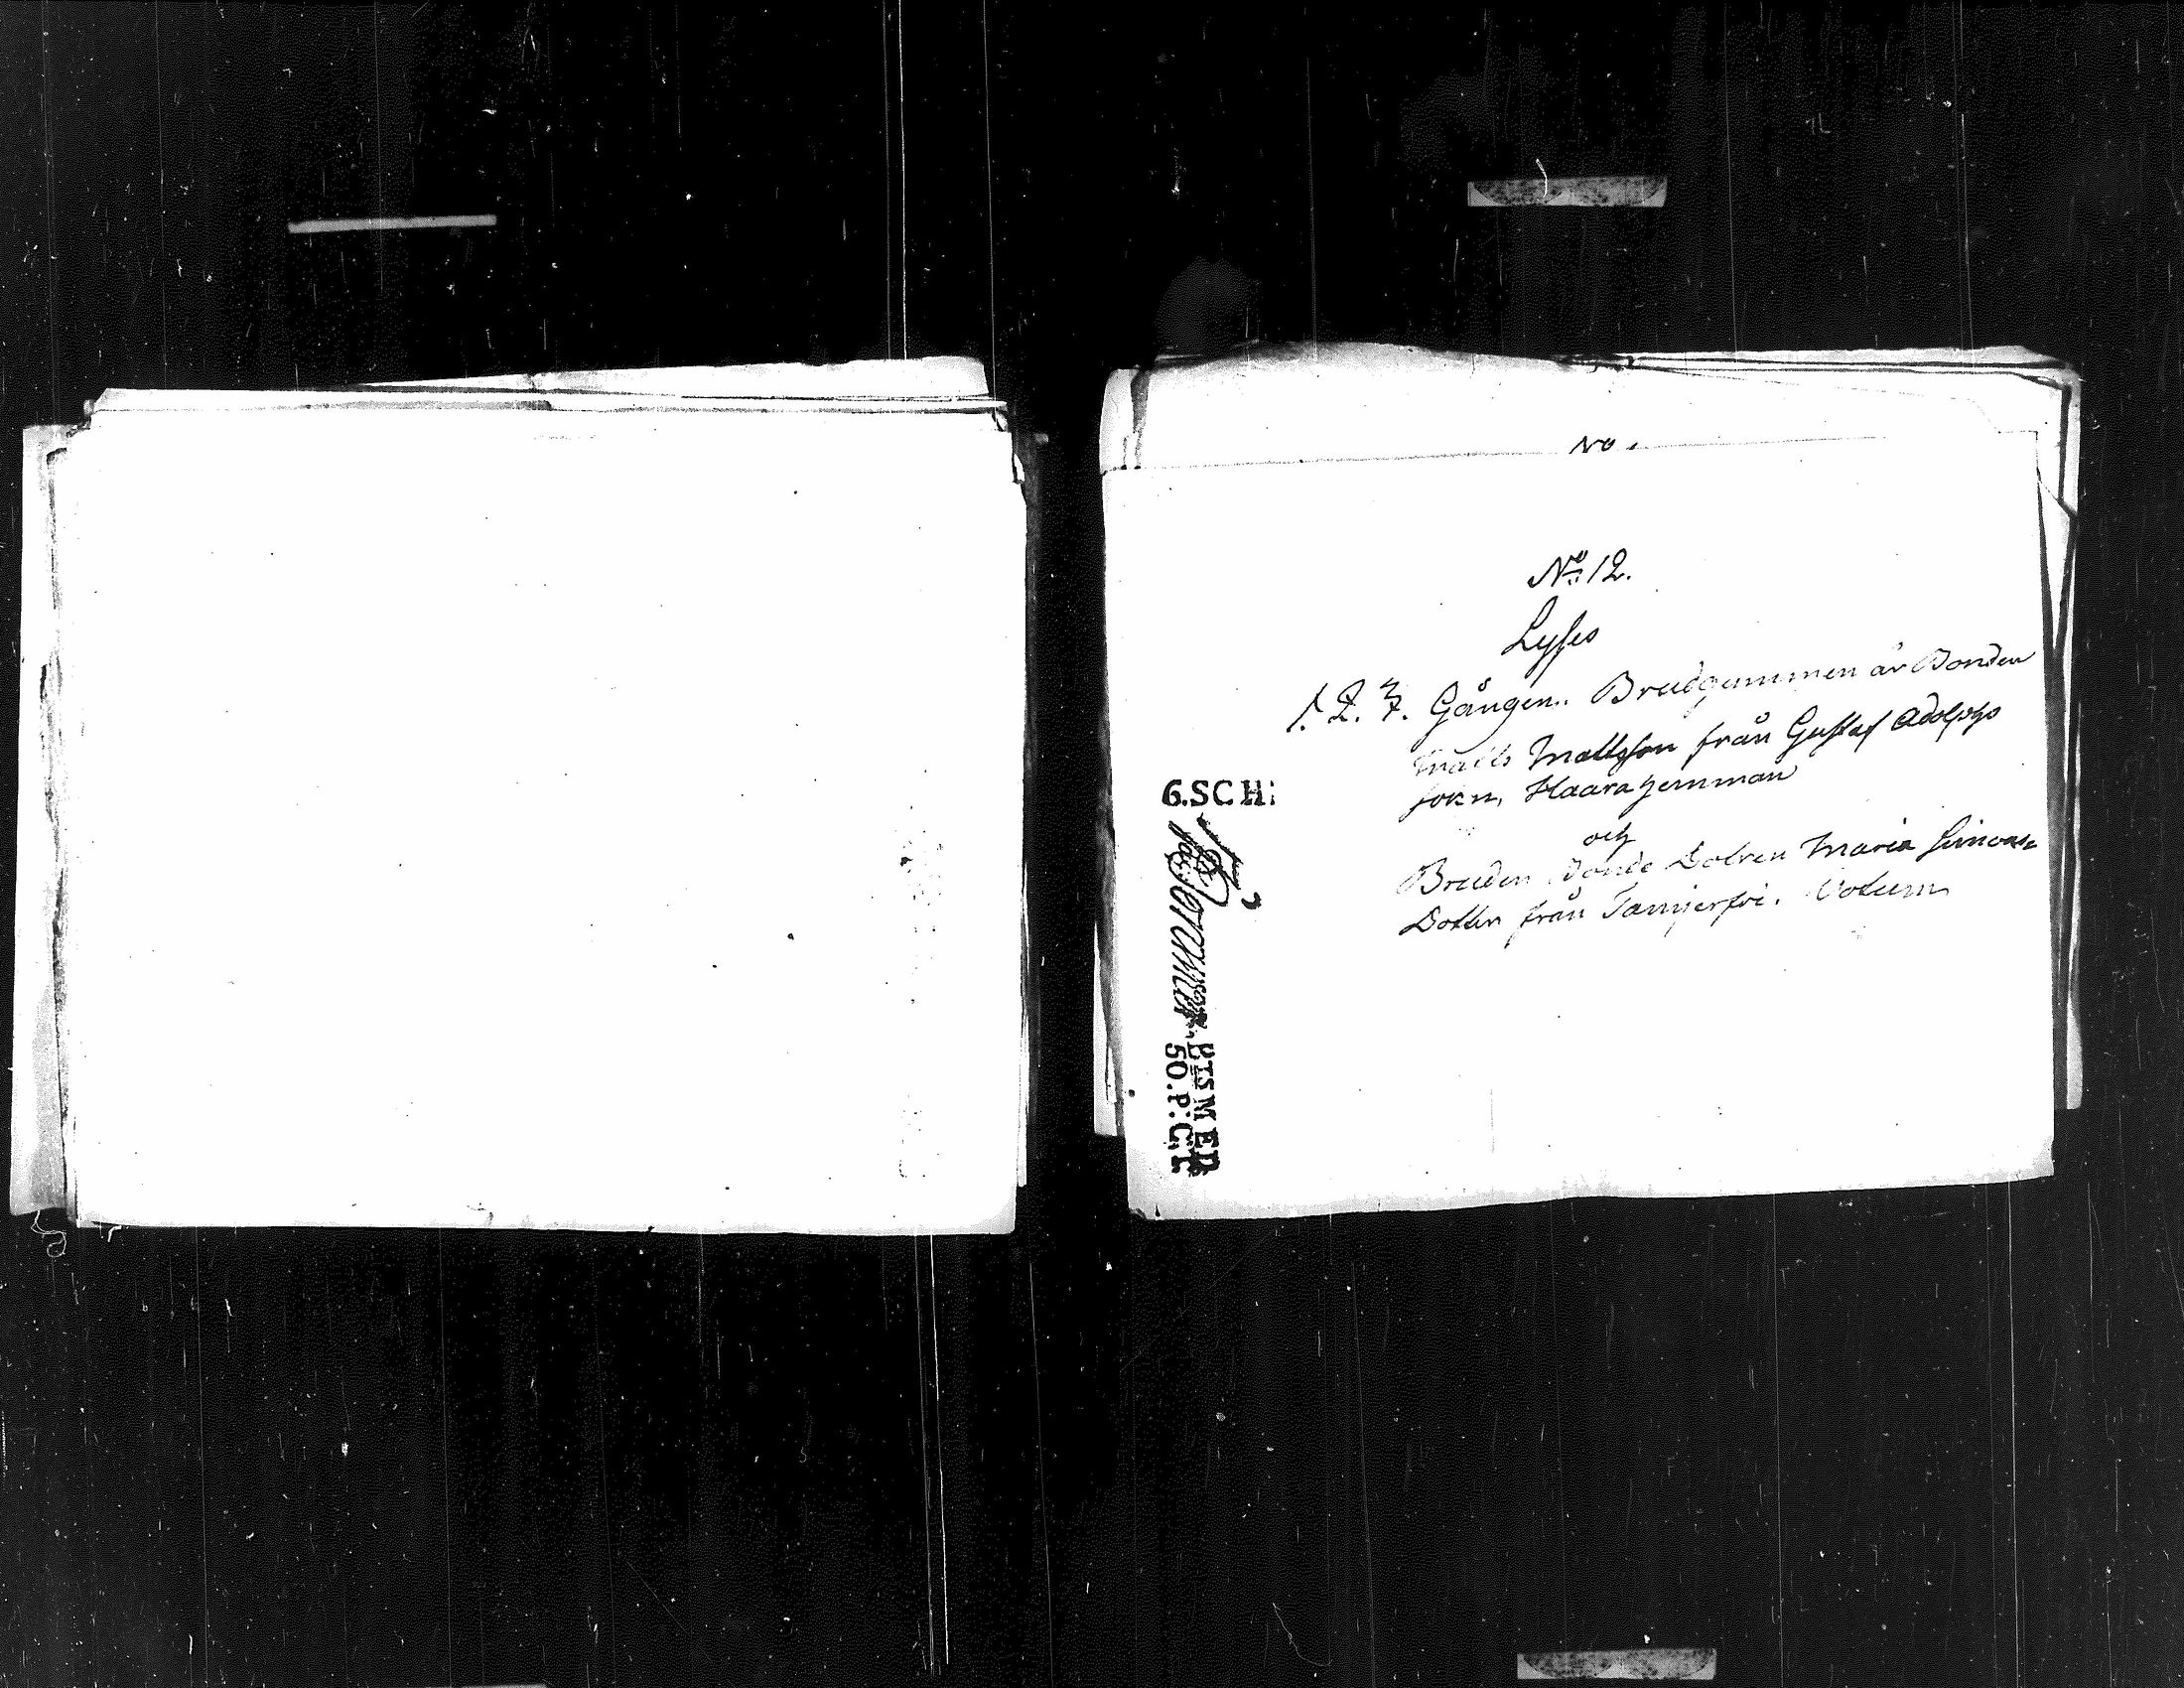 No.
No 12.
Lyses
1. 2. 3. Gången. Brudgummen är Bonden
Matts Mattsson från Gustaf Adolphs
sokn, Haara hemman
och
Bruden Bonde Dotren Maria Simons
Dotter från
6.SCH:
BTS MED
50.P:CT.